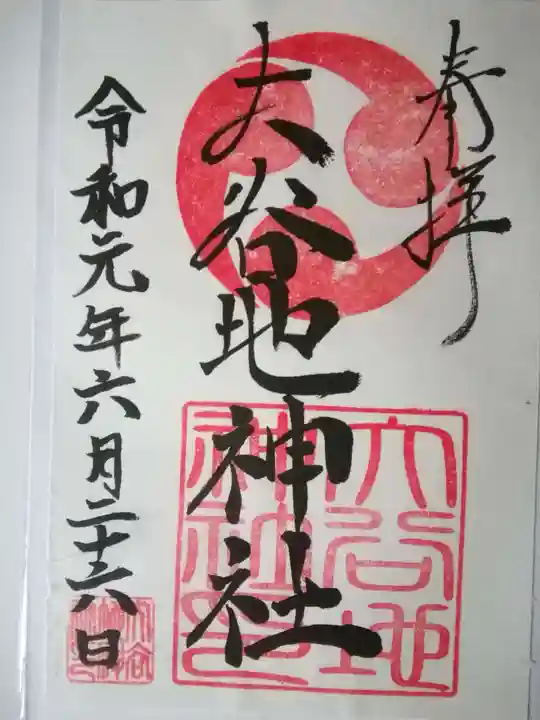 奉拝
大谷地神社
大谷地
神社印
令和元年六月二十六日